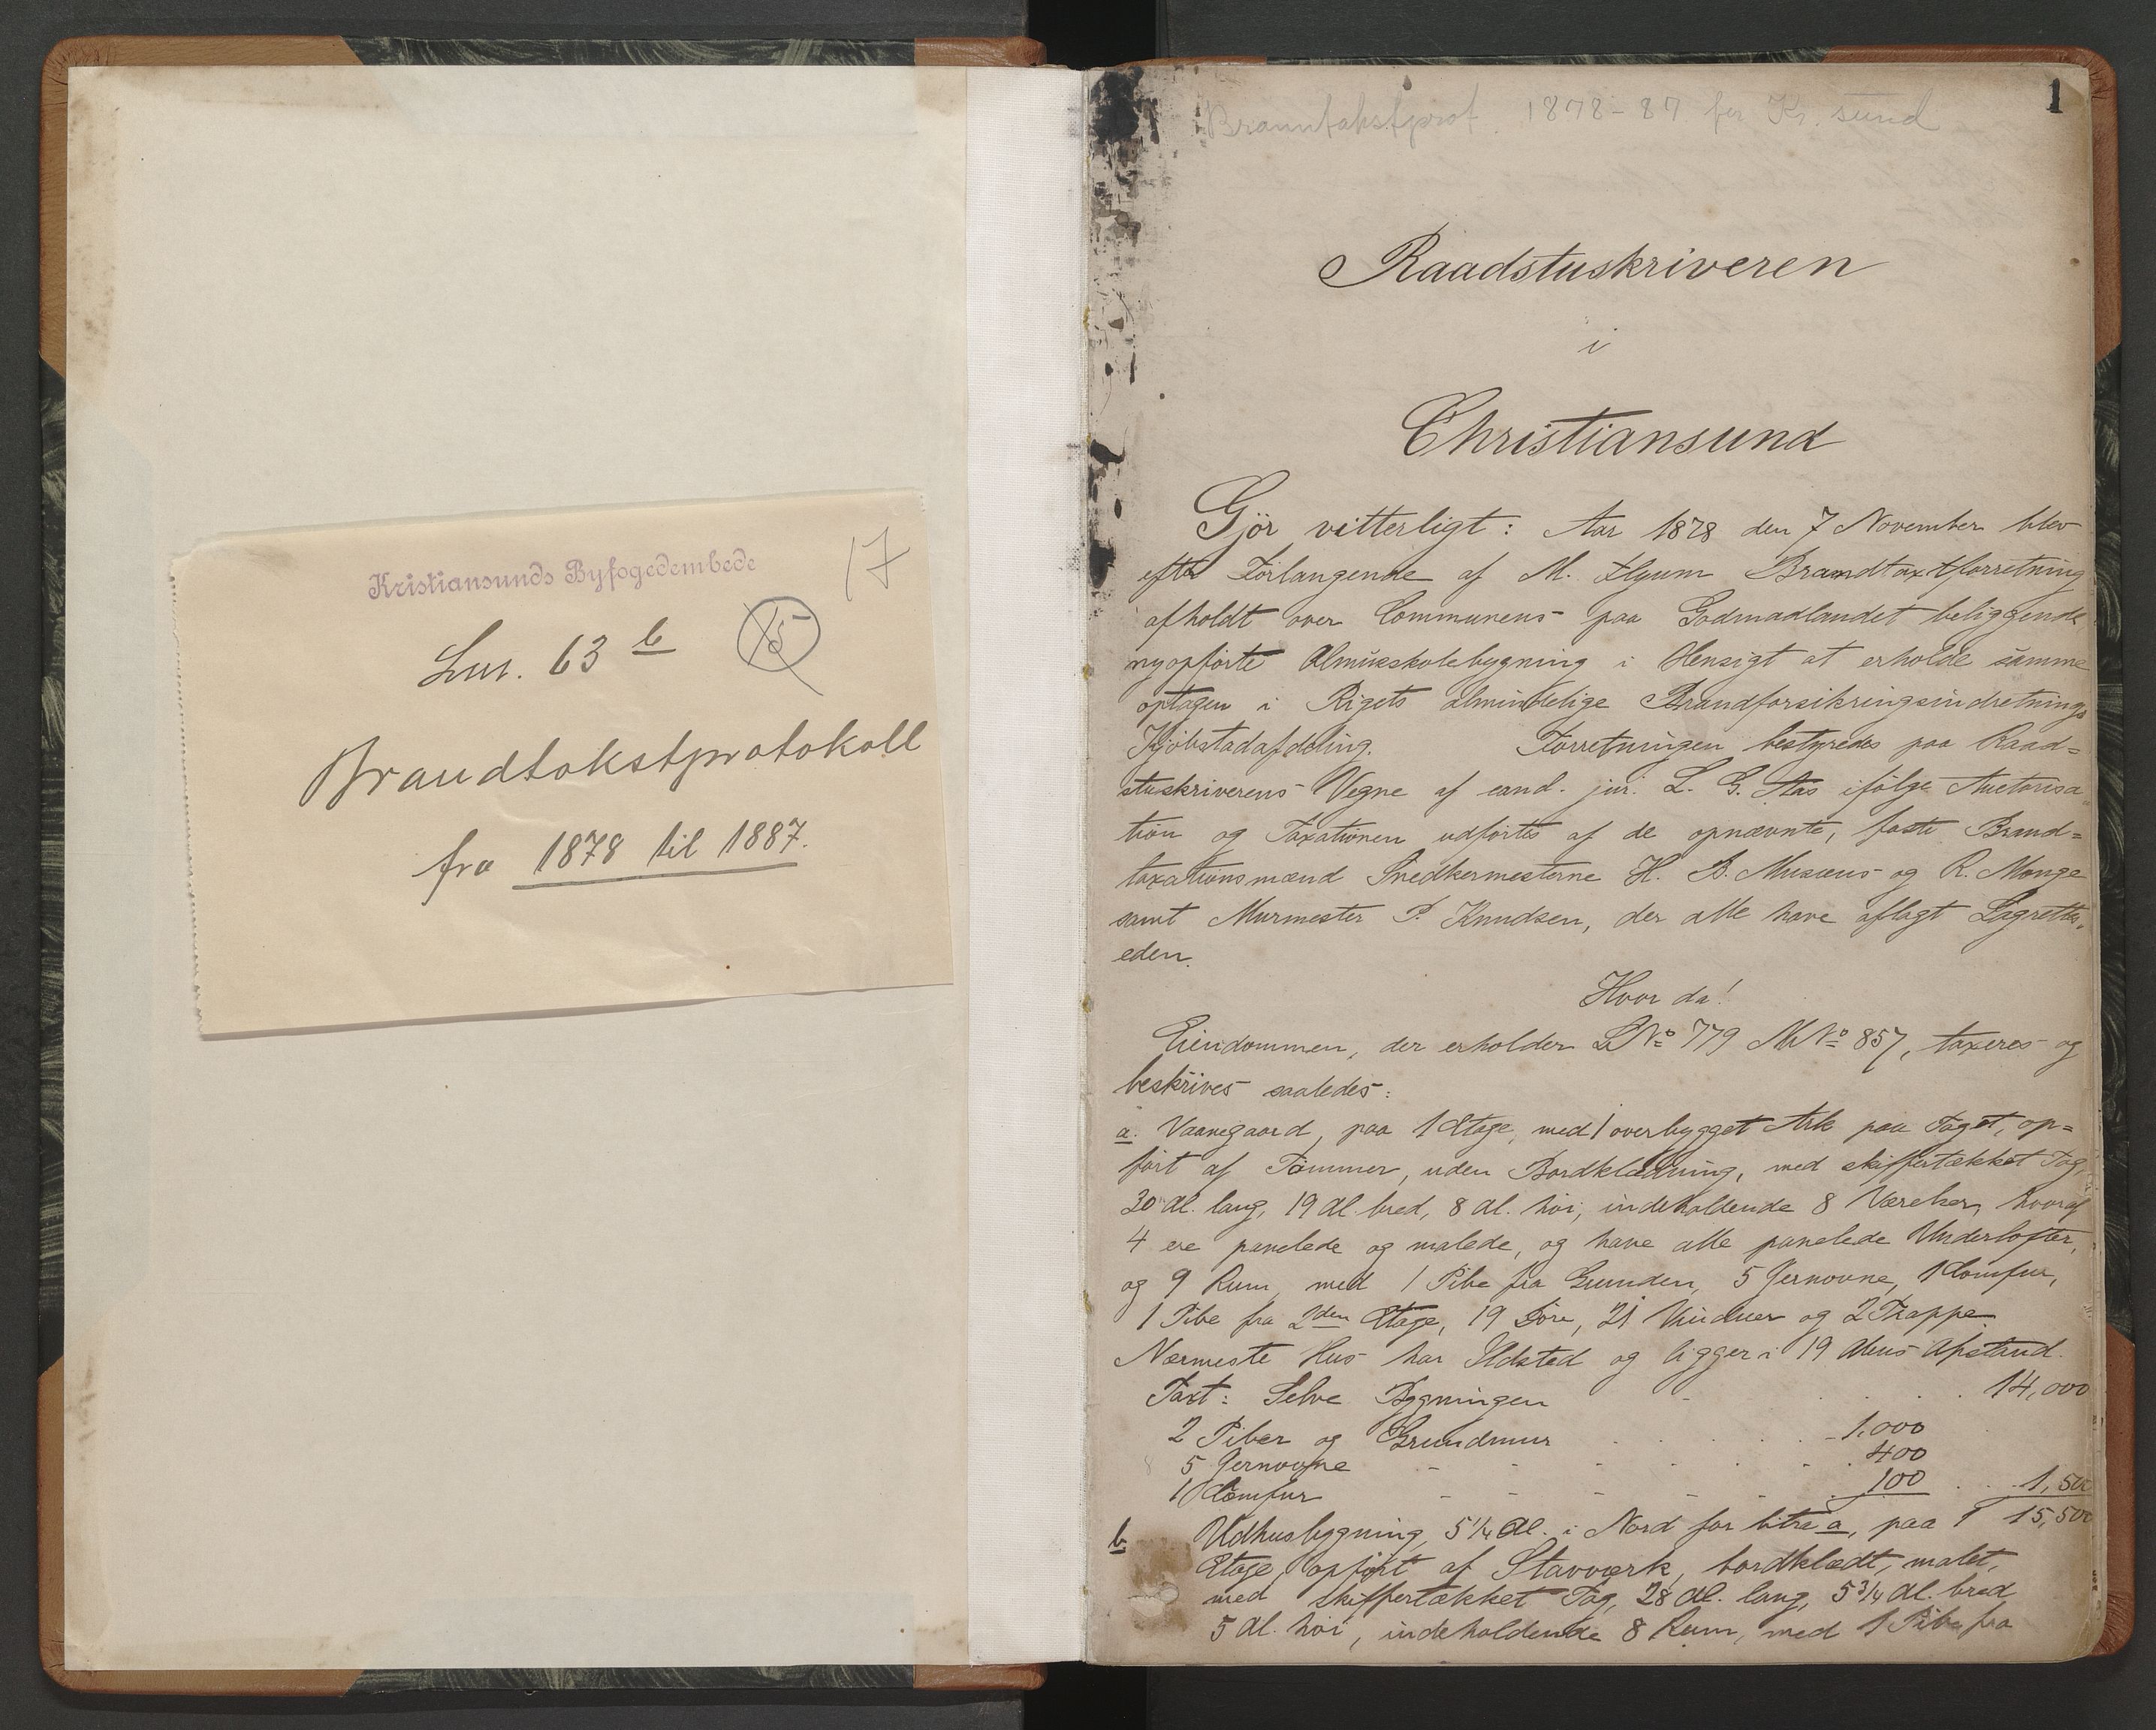 Kristiansunds Byfogedembede
17
Lnr. 63 b
15
Brandtakstprotokoll
fra 1878 til 1887.
1
Branntakstprot. 1878-87 for Kr. sund
Raadstuskriveren
i
Christiansund
Gjör vitterligt: Aar 1878 den 7 November blev
efter Forlangende af M. Brandtaxtforretning
afholdt over Communens paa Gadmadlandet beliggende
nyopförte Almueskolebygning i Hensigt at erholde samme
optagen i Rigets almindelige Brandforsikringsindretnings
Kjöbstadafdeling. Forretningen bestyredes paa Raad=
stuskriverens Vegne af cand. jur. L. G. Aas ifölge Auctorisa
tion og Taxationen udförtes af de opnævnte, faste Brand=
taxationsmænd Snedkermesterne H. B. Musæus og R. Monge
samt Murmester P. Knudsen, der alle have aflagt Lagrettes
eden.
Hvor da!
Eiendommen, der erholder L No 779 M No 857, taxeres og
beskrives saaledes:
a. Vaanegaard, paa 1 Etage, med 1 overbygget Ark paa Taget, op=
fört af Tömmer, uden Bordklædning, med skiffertækket Tag,
30 Al. lang, 19 Al. bred, 8 Al. höi, indeholdende 8 Værelser, hvoraf
4 ere panelede og malede, og have alle panelede Underlofter,
og 9 Rum, med 1 Pibe fra Grunden, 5 Jernovne, 1 Comfur,
1 Pibe fra 2den Etage, 19 Döre, 21 Vinduer og 2 Trappe
Nærmeste Hus har Ildsted og ligger i 19 Alens Afstand.
Taxt: Selve Bygningen - . . . 14,000
2 Piber og Grundmur . . . . . - 1.000
5 Jernovne - - - - - . . 400
1 Comfur - - - - - . 100 . . 1,500
b Udhusbygning, 5 1/4 Al. i Nord for litra a, paa 1 15,500
Etage opfört af Stavværk, bordklædt, malet,
med skiffertækket Tag, 28 Al. lang, 5 3/4 Al. bred
5 Al. höi, indeholdende 8 Rum, med 1 Pibe fra